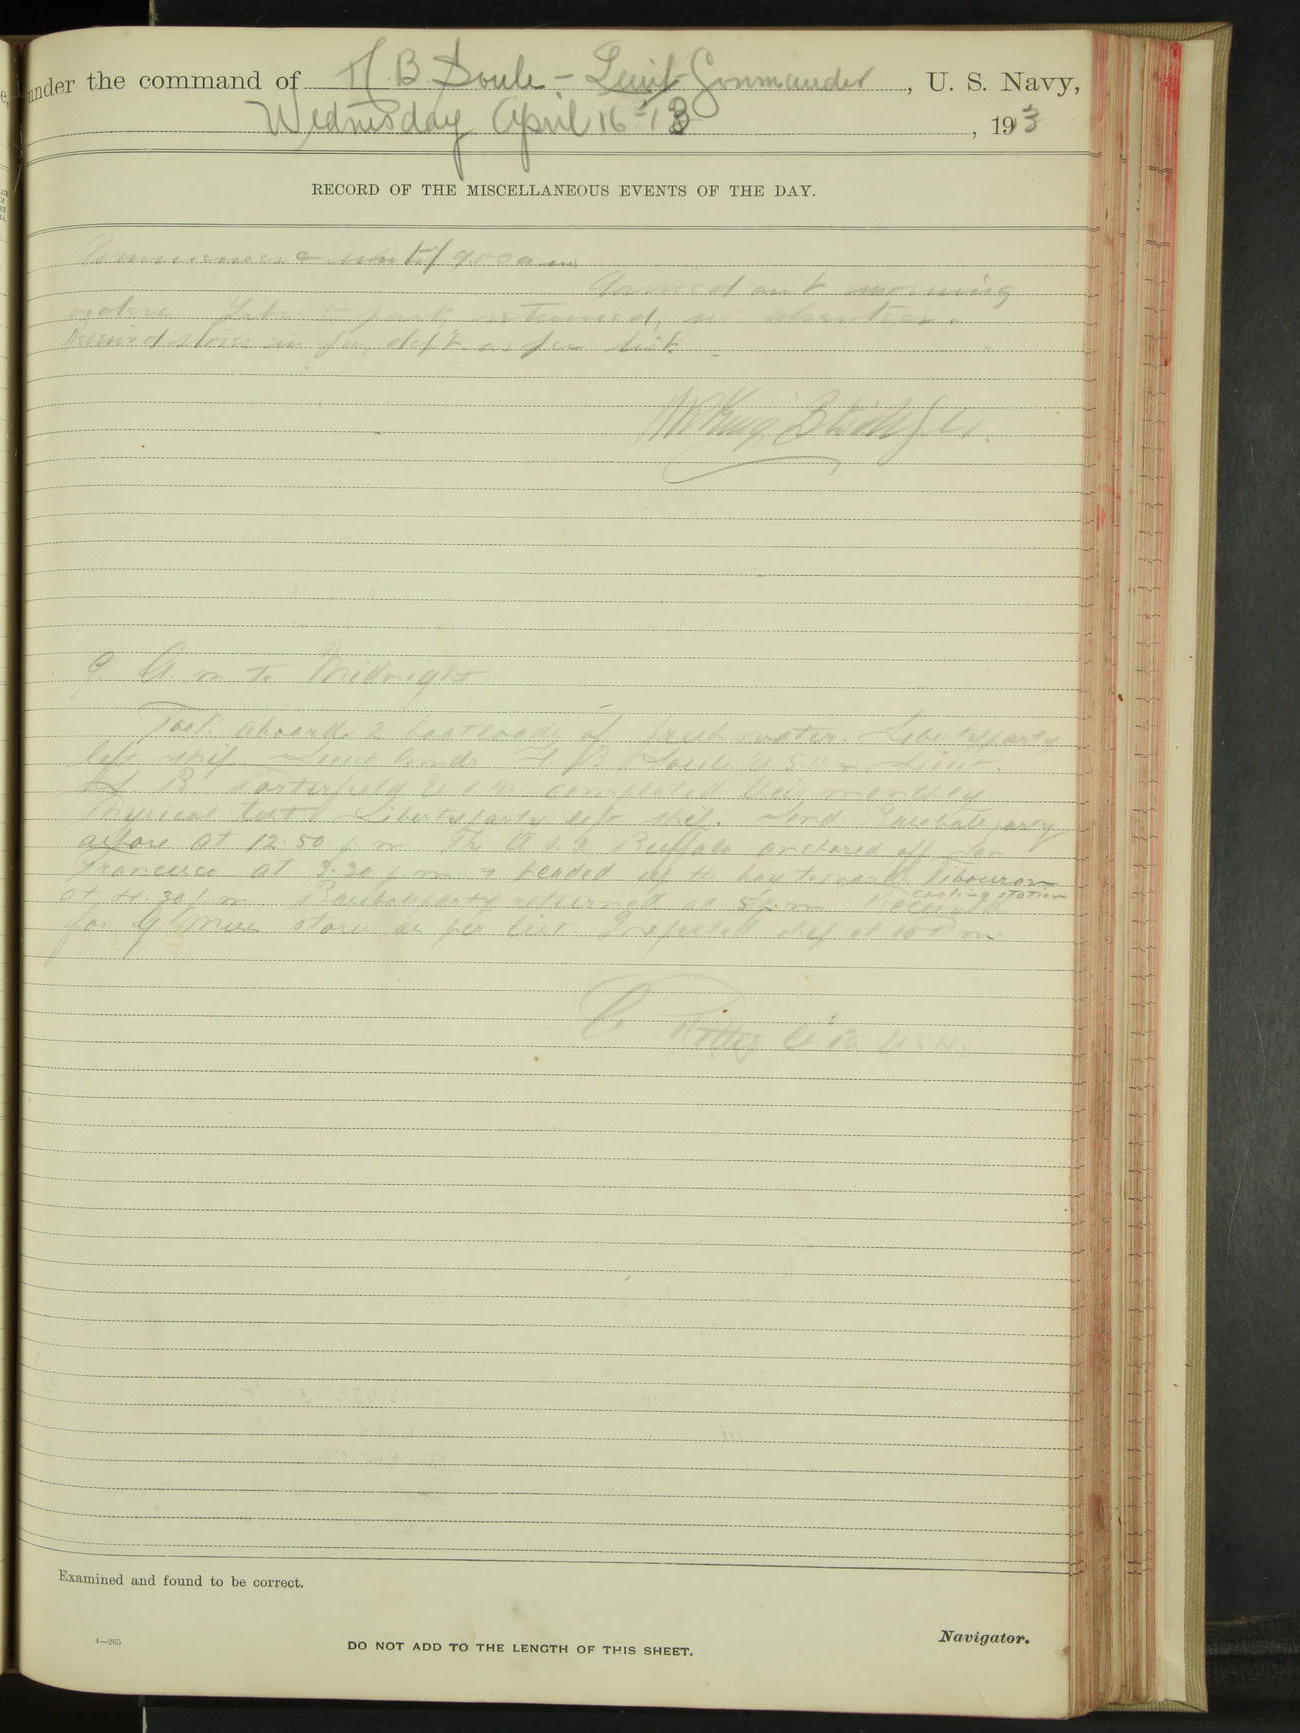 under the command of H B Soule - Lieut Commander, U. S. Navy,
Wednesday April 16 - 13, 1913
RECORD OF THE MISCELLANEOUS EVENTS OF THE DAY.
Commence until 9.00 a m
Carried out morning
orders. Liberty party returned, no absentees.
Received stores in dept. as per list.
9 A. m to Midnight
Took aboard 2 boatloads of fresh water. Liberty party
left ship. Lieut Comdr H B Soule U.S.N & Lieut.
B Porterfield U S N completed their monthly
Physical test. Liberty party left ship. Send Baseball party
ashore at 12.50 p m. The U S S Buffalo anchored off San
Francisco at 3.20 p m & headed up the bay towards Tibouron
coaling station
at 4.30 p m. Baseball party returned at 5 p m
for G Mess stores as per list. Inspected ship at 10 P m
U.S.N.
Examined and found to be correct.
4—265
DO NOT ADD TO THE LENGTH OF THIS SHEET.
Navigator.